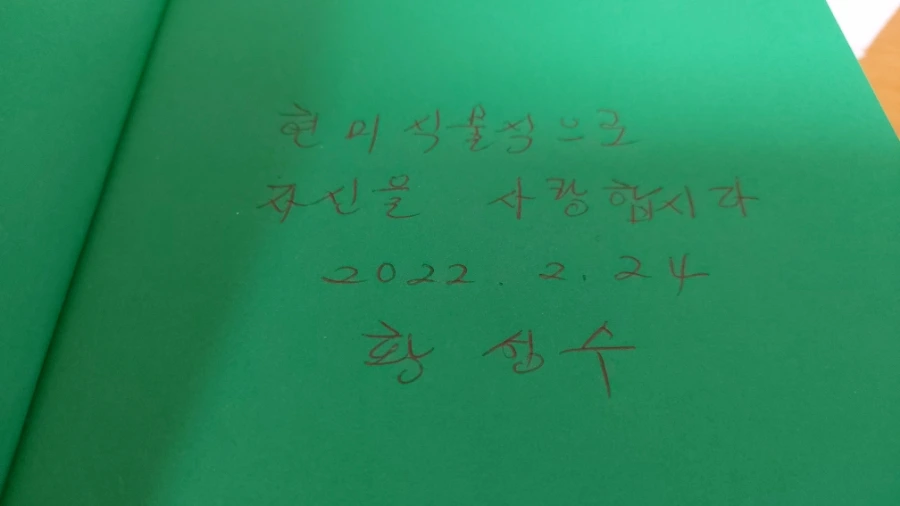 현미식물식으로
자신을 사랑합시다
2022. 2. 24
황성수